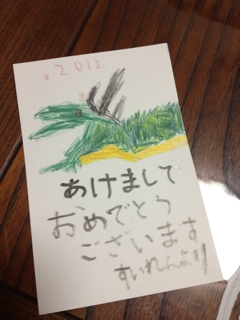 2012
あけまして
おめでとう
ございます
すいれんより